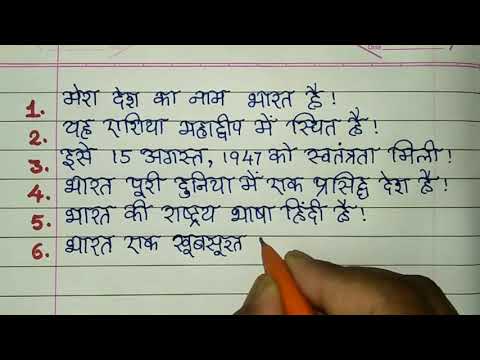 1. मेरा देश का नाम भारत है!
2. यह एशिया महाद्वीप में स्थित है!
3. इसे 15 अगस्त, 1947 को स्वतंत्रता मिली!
4. भारत पूरी दुनिया में एक प्रसिद्ध देश है!
5. भारत की राष्ट्रय भाषा हिंदी है!
6. भारत एक खूबसूरत